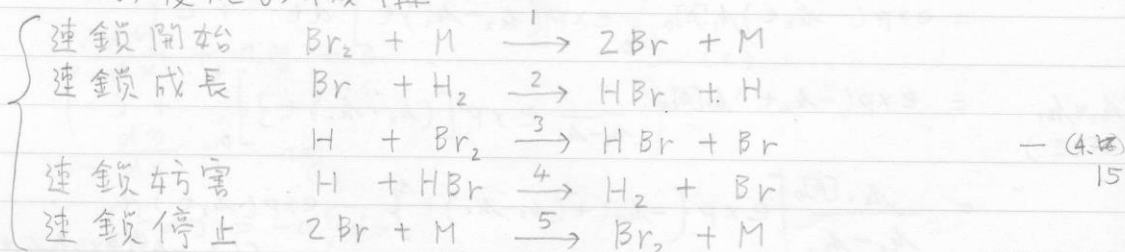 連鎖開始 Br₂ + M →(1) 2Br + M
連鎖成長 Br + H₂ →(2) HBr + H
H + Br₂ →(3) HBr + Br — (4.15)
連鎖妨害 H + HBr →(4) H₂ + Br
連鎖停止 2Br + M →(5) Br₂ + M